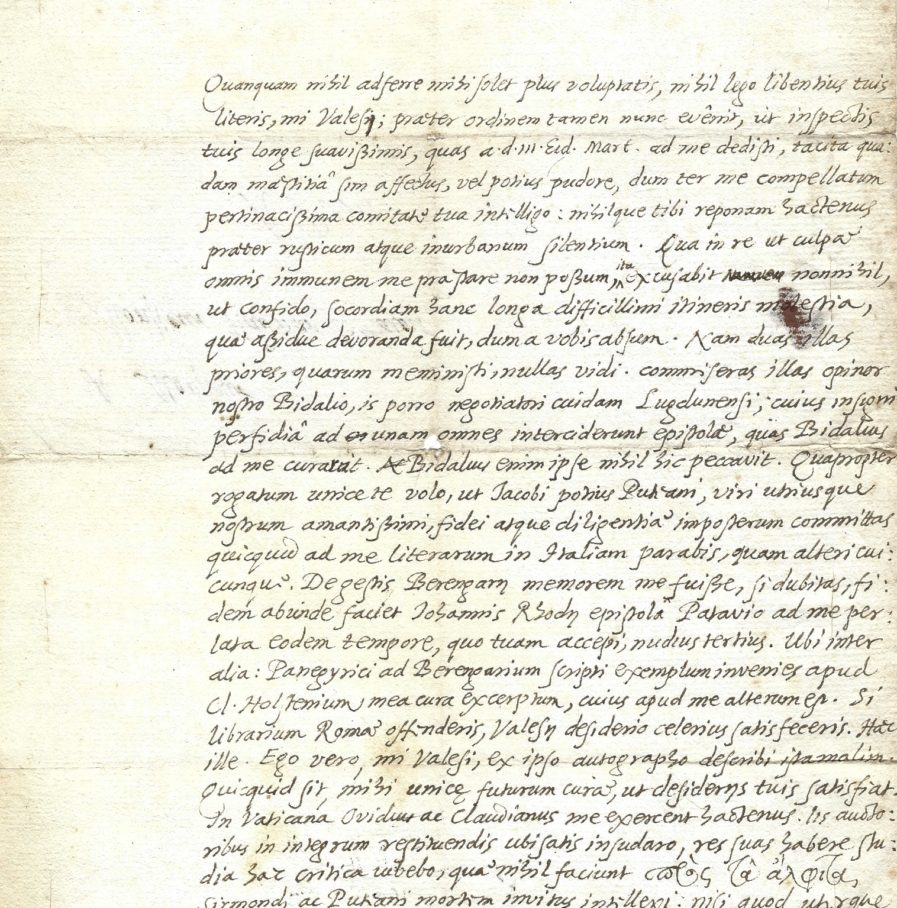 Quanquam nihil adferre mihi solet plus voluptatis, nihil lego libentius tuis
literis, mi Valesi; præter ordinem tamen nunc evênit, ut inspectis
tuis longe suavißimis, quas a·d·III·Eid. Mart. ad me dedisti, tacita qua:
dam mæstitiâ sim affectus, vel potius pudore, dum ter me compellatum
pertinacißima comitate tua intelligo: nihilque tibi reponam hactenus
præter rusticum atque inurbanum silentium. Qua in re ut culpâ
omnis immunem me præstare non poßum, ita excusabit nonnihil,
ut confido, socordiam hanc longa difficillimi itineris molestia,
quæ aßidue devoranda fuit, dum a vobis absum. Nam duas illas
priores, quarum meministi, nullas vidi. commiseras illas opinor
nostro Bidalio, is porro negotiatori cuidam Lugdunensi; cuius insigni
perfidiâ ad unam omnes interciderunt epistolæ, quas Bidalius
ad me curarat. Bidalius enim ipse nihil hic peccavit. Quapropter
rogatum unice te volo, ut Iacobi potius Puteani, viri utriusque
nostrum amantißimi, fidei atque diligentiæ imposterum committas
quicquid ad me literarum in Italiam parabis, quam alteri cui:
cunque. De gestis Berengarij memorem me fuiße, si dubitas, fi:
dem abunde faciet Iohannis Rhodij epistola Patavio ad me per:
lata eodem tempore, quo tuam accepi, nudius tertius. Ubi inter
alia: Panegyrici ad Berengarium scripti exemplum invenies apud
Cl. Holstenium, mea cura excerptum, cuius apud me alterum est. Si
librarium Romæ offenderis, Valesij desiderio celerius satisfeceris. Hæc
ille. Ego vero, mi Valesi, ex ipso autographo describi ista malim.
Quicquid sit, mihi unicę futurum curæ, ut desiderijs tuis satisfiat.
In Vaticana Ovidius ac Claudianus me exercent hactenus. Iis aucto:
ribus in integrum restituendis ubi satis insudaro, res suas habere stu:
dia hæc critica iubebo, quæ nihil faciunt πρὸς τὰ ἄλφιτα,
Sirmondi ac Puteani mortem invitus intellexi: nisi quod uterque